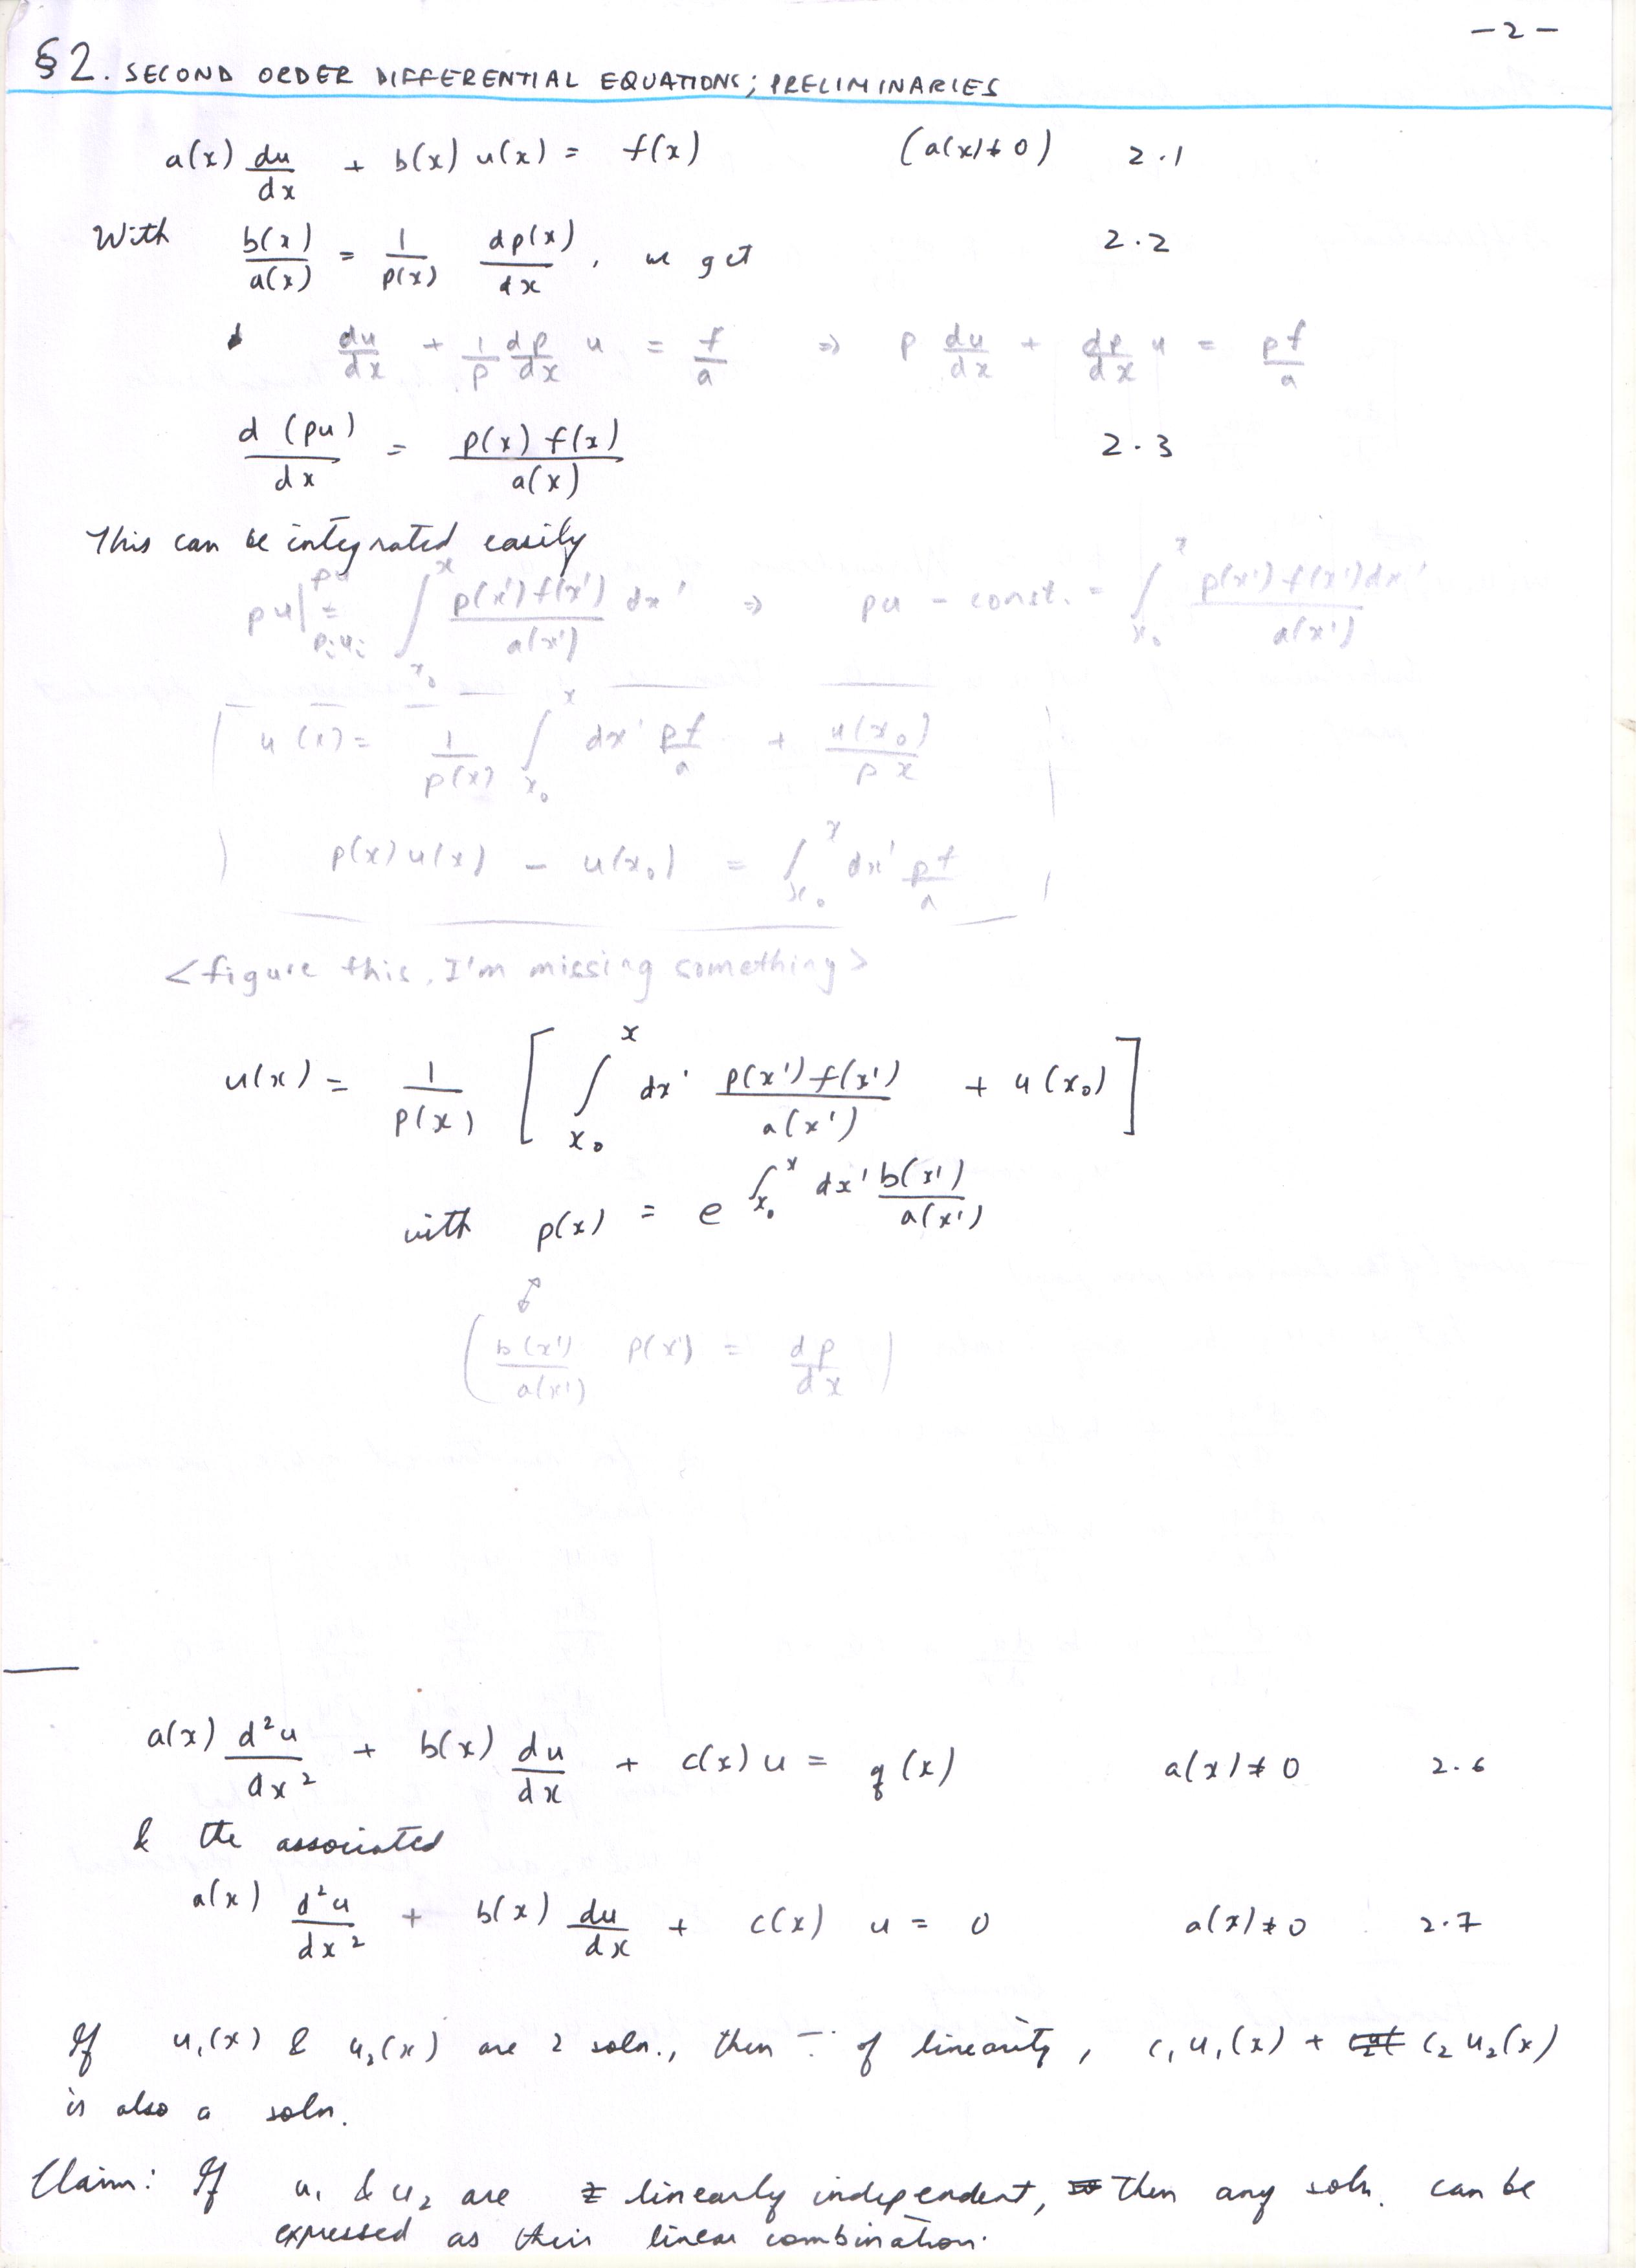 - 2 -
§2. SECOND ORDER DIFFERENTIAL EQUATIONS; PRELIMINARIES
a(x) du/dx + b(x) u(x) = f(x) (a(x) ≠ 0) 2.1
With b(x)/a(x) = 1/p(x) dp(x)/dx, we get 2.2
du/dx + 1/p dp/dx u = f/a ⇒ p du/dx + dp/dx u = pf/a
d(pu)/dx = p(x) f(x)/a(x) 2.3
This can be integrated easily
pu|_{p_i u_i}^{pu} = ∫_{x_0}^{x} p(x') f(x')/a(x') dx' ⇒ pu - const. = ∫_{x_0}^{x} p(x') f(x') dx'/a(x')
u(x) = 1/p(x) ∫_{x_0}^{x} dx' pf/a + u(x_0)/p x
p(x) u(x) - u(x_0) = ∫_{x_0}^{x} dx' pf/a
<figure this, I'm missing something>
u(x) = 1/p(x) [ ∫_{x_0}^{x} dx' p(x') f(x')/a(x') + u(x_0) ]
with p(x) = e^{∫_{x_0}^{x} dx' b(x')/a(x')}
( b(x')/a(x') p(x') = dp/dx )
a(x) d²u/dx² + b(x) du/dx + c(x) u = g(x) a(x) ≠ 0 2.6
& the associated
a(x) d²u/dx² + b(x) du/dx + c(x) u = 0 a(x) ≠ 0 2.7
If u₁(x) & u₂(x) are 2 soln., then ∵ of linearity, c₁u₁(x) + c₂u₂(x)
is also a soln.
Claim: If u₁ & u₂ are linearly independent, then any soln. can be
expressed as their linear combination.